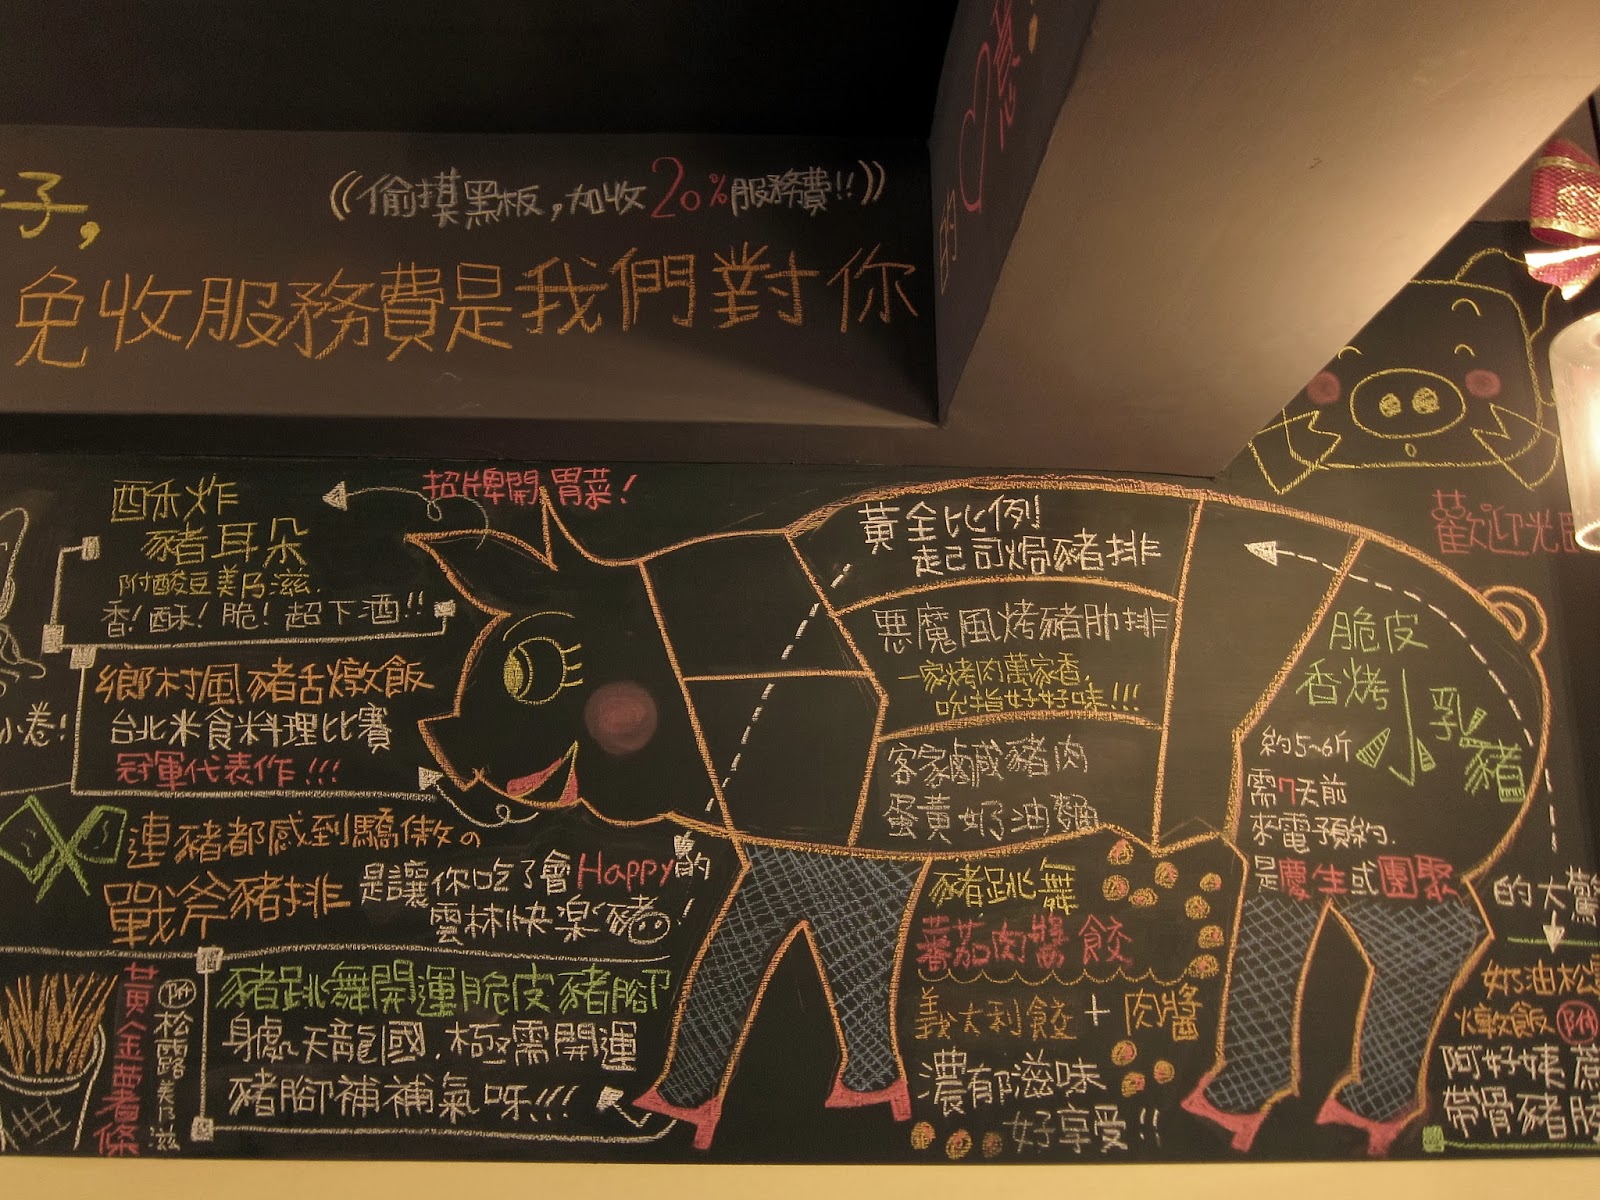 子,
((偷摸黑板,加收20%服務費!!))
免收服務費是我們對你
的
招牌開胃菜!
酥炸
豬耳朵
附酸豆美乃滋.
香!酥!脆!超下酒!!
鄉村風豬舌燉飯
台北米食料理比賽
冠軍代表作!!!
小卷!
連豬都感到驕傲の
戰斧豬排
是讓你吃了會Happy的
雲林快樂豬!
豬跳舞開運脆皮豬腳
身處天龍國.極需開運
豬腳補補氣呀!!!
黃金薯條
附松露美乃滋
黃金比例
起司焗豬排
惡魔風烤豬肋排
一家烤肉萬家香,
吮指好好味!!!
客家鹹豬肉
蛋黃奶油麵
豬跳舞
蕃茄肉醬餃
義大利餃+肉醬
濃郁滋味
好享受!!
歡迎光
脆皮
香烤小乳豬
約5~6斤
需7天前
來電預約.
是慶生或團聚
的大驚
奶油松
燉飯附
阿好姨
帶骨豬